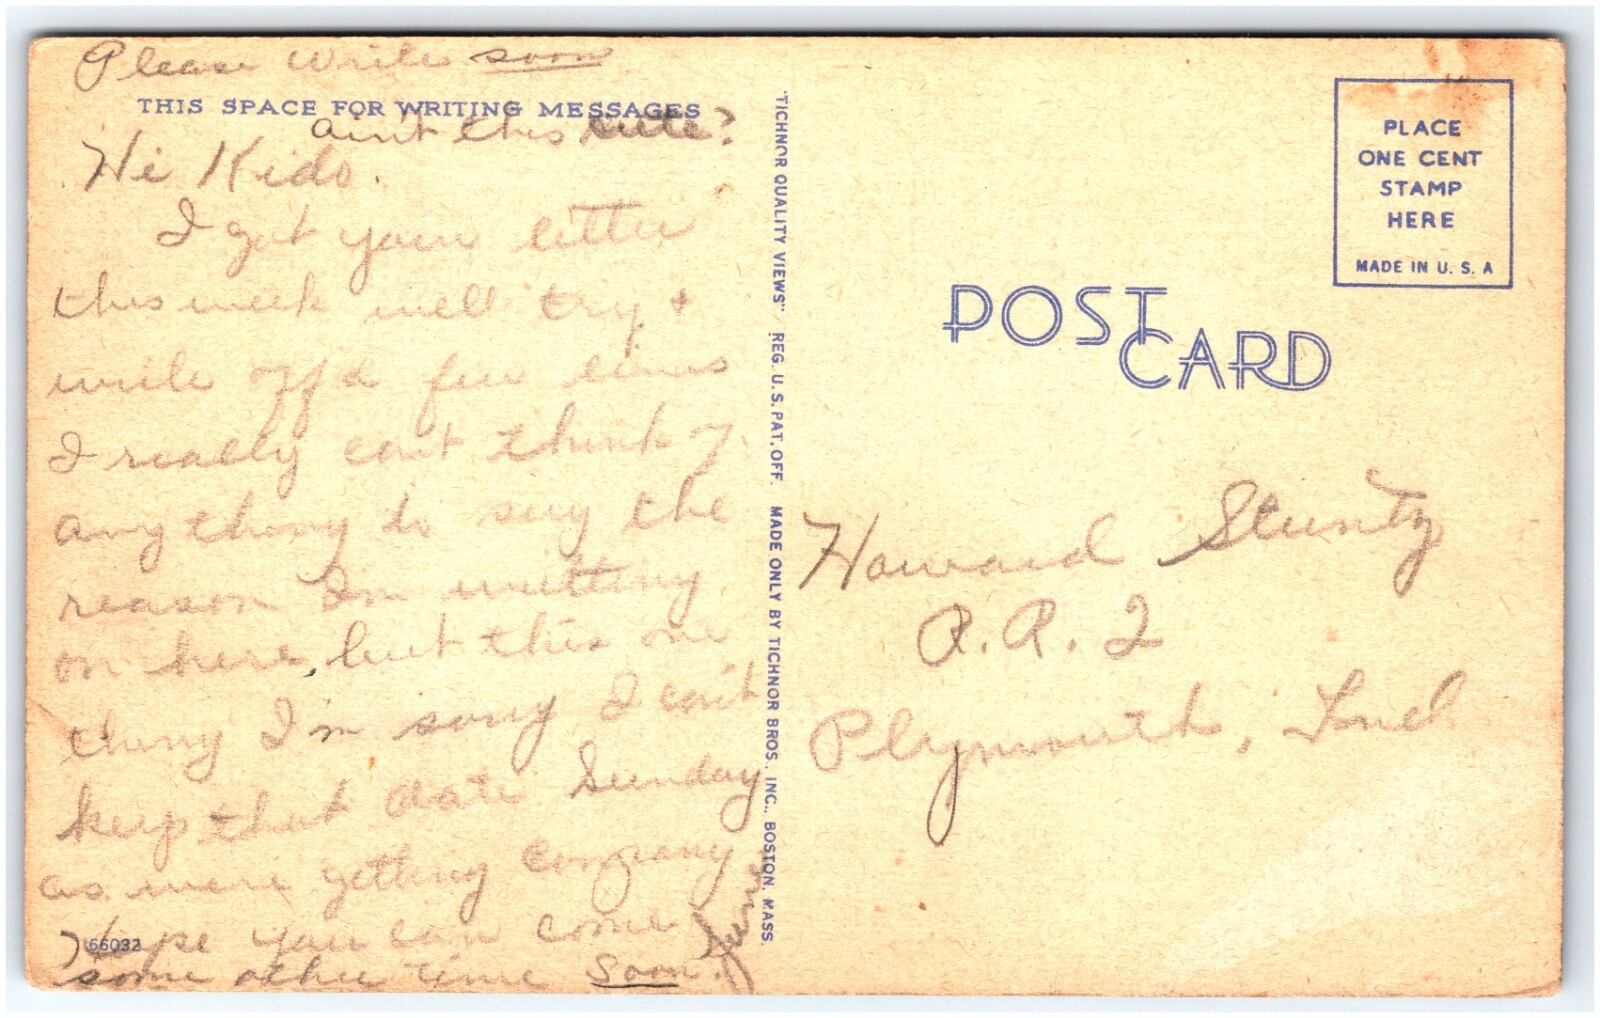 Please write soon
THIS SPACE FOR WRITING MESSAGES
aint this cute?
Hi Kido.
I got your letter
this week well try +
write off a few lines
I really can't think of
anything to say the
reason I'm writting
on here, but this one
thing I'm sorry I can't
keep that date Sunday
as were getting company
Hope you can come
some other time soon.
66032
"TICHNOR QUALITY VIEWS" REG. U.S. PAT. OFF. MADE ONLY BY TICHNOR BROS. INC., BOSTON, MASS.
PLACE
ONE CENT
STAMP
HERE
MADE IN U. S. A
POST
CARD
Howard Stuntz
R.R. 2
Plymouth, Ind